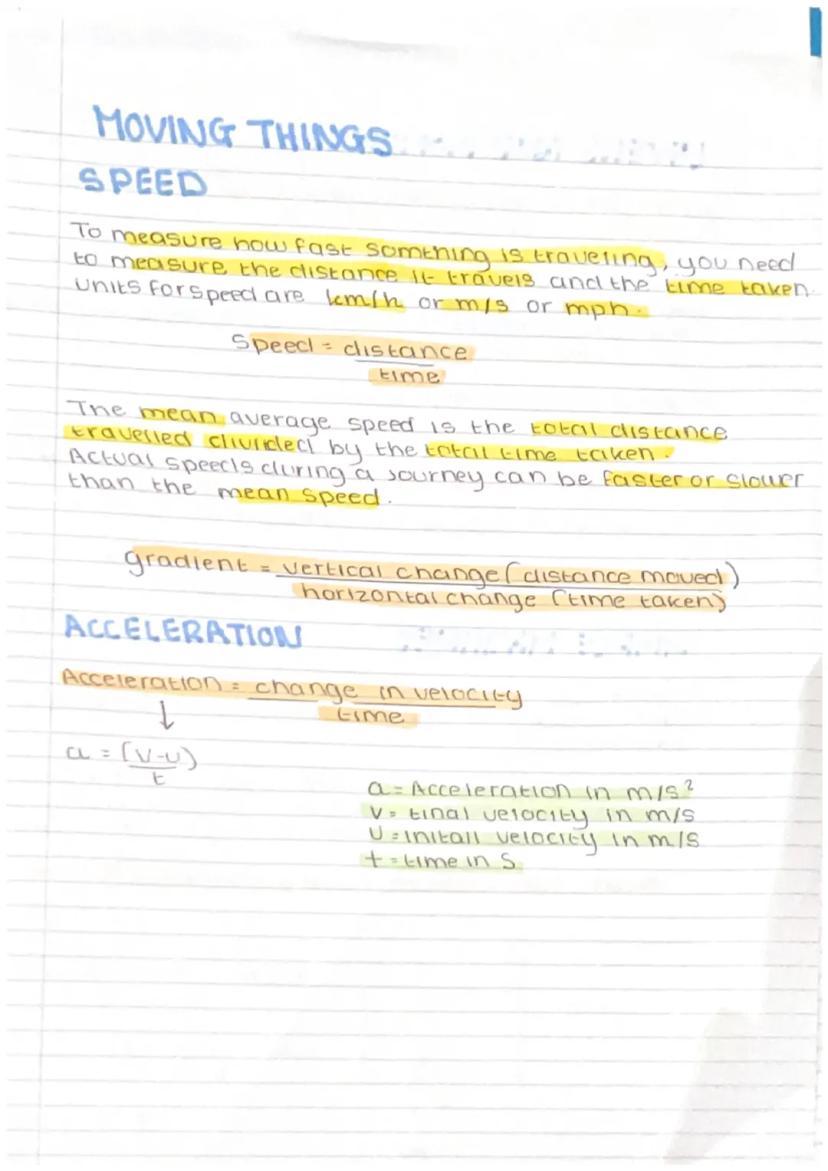 MOVING THINGS
SPEED
To measure how fast somthing is traveling, you need
to measure the distance it travels and the time taken.
Units for speed are km/h or m/s or mph.
Speed = distance
time
The mean average speed is the total distance
travelled divided by the total time taken.
Actual speeds during a journey can be faster or slower
than the mean speed.
gradient = vertical change (distance moved)
horizontal change (time taken)
ACCELERATION
Acceleration = change in velocity
time
↓
a = (v-u)
t
a = Acceleration in m/s²
V = final velocity in m/s
U = initall velocity in m/s
t = time in s